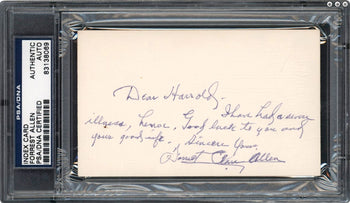 PSA/DNA
INDEX CARD
FORREST ALLEN
PSA/DNA CERTIFIED
AUTHENTIC
AUTO
83138089
Dear Harold,
I have had a
illness, hence. Good luck to you and
your good wife. Sincerely Yours,
Forrest "Phog" Allen